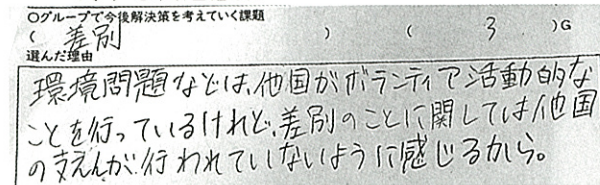 ○グループで今後解決策を考えていく課題
( 差別 ) ( 3 )G
選んだ理由
環境問題などは、他国がボランティア活動的な
ことを行っているけれど、差別のことに関しては他国
の支えんが行われていないように感じるから。